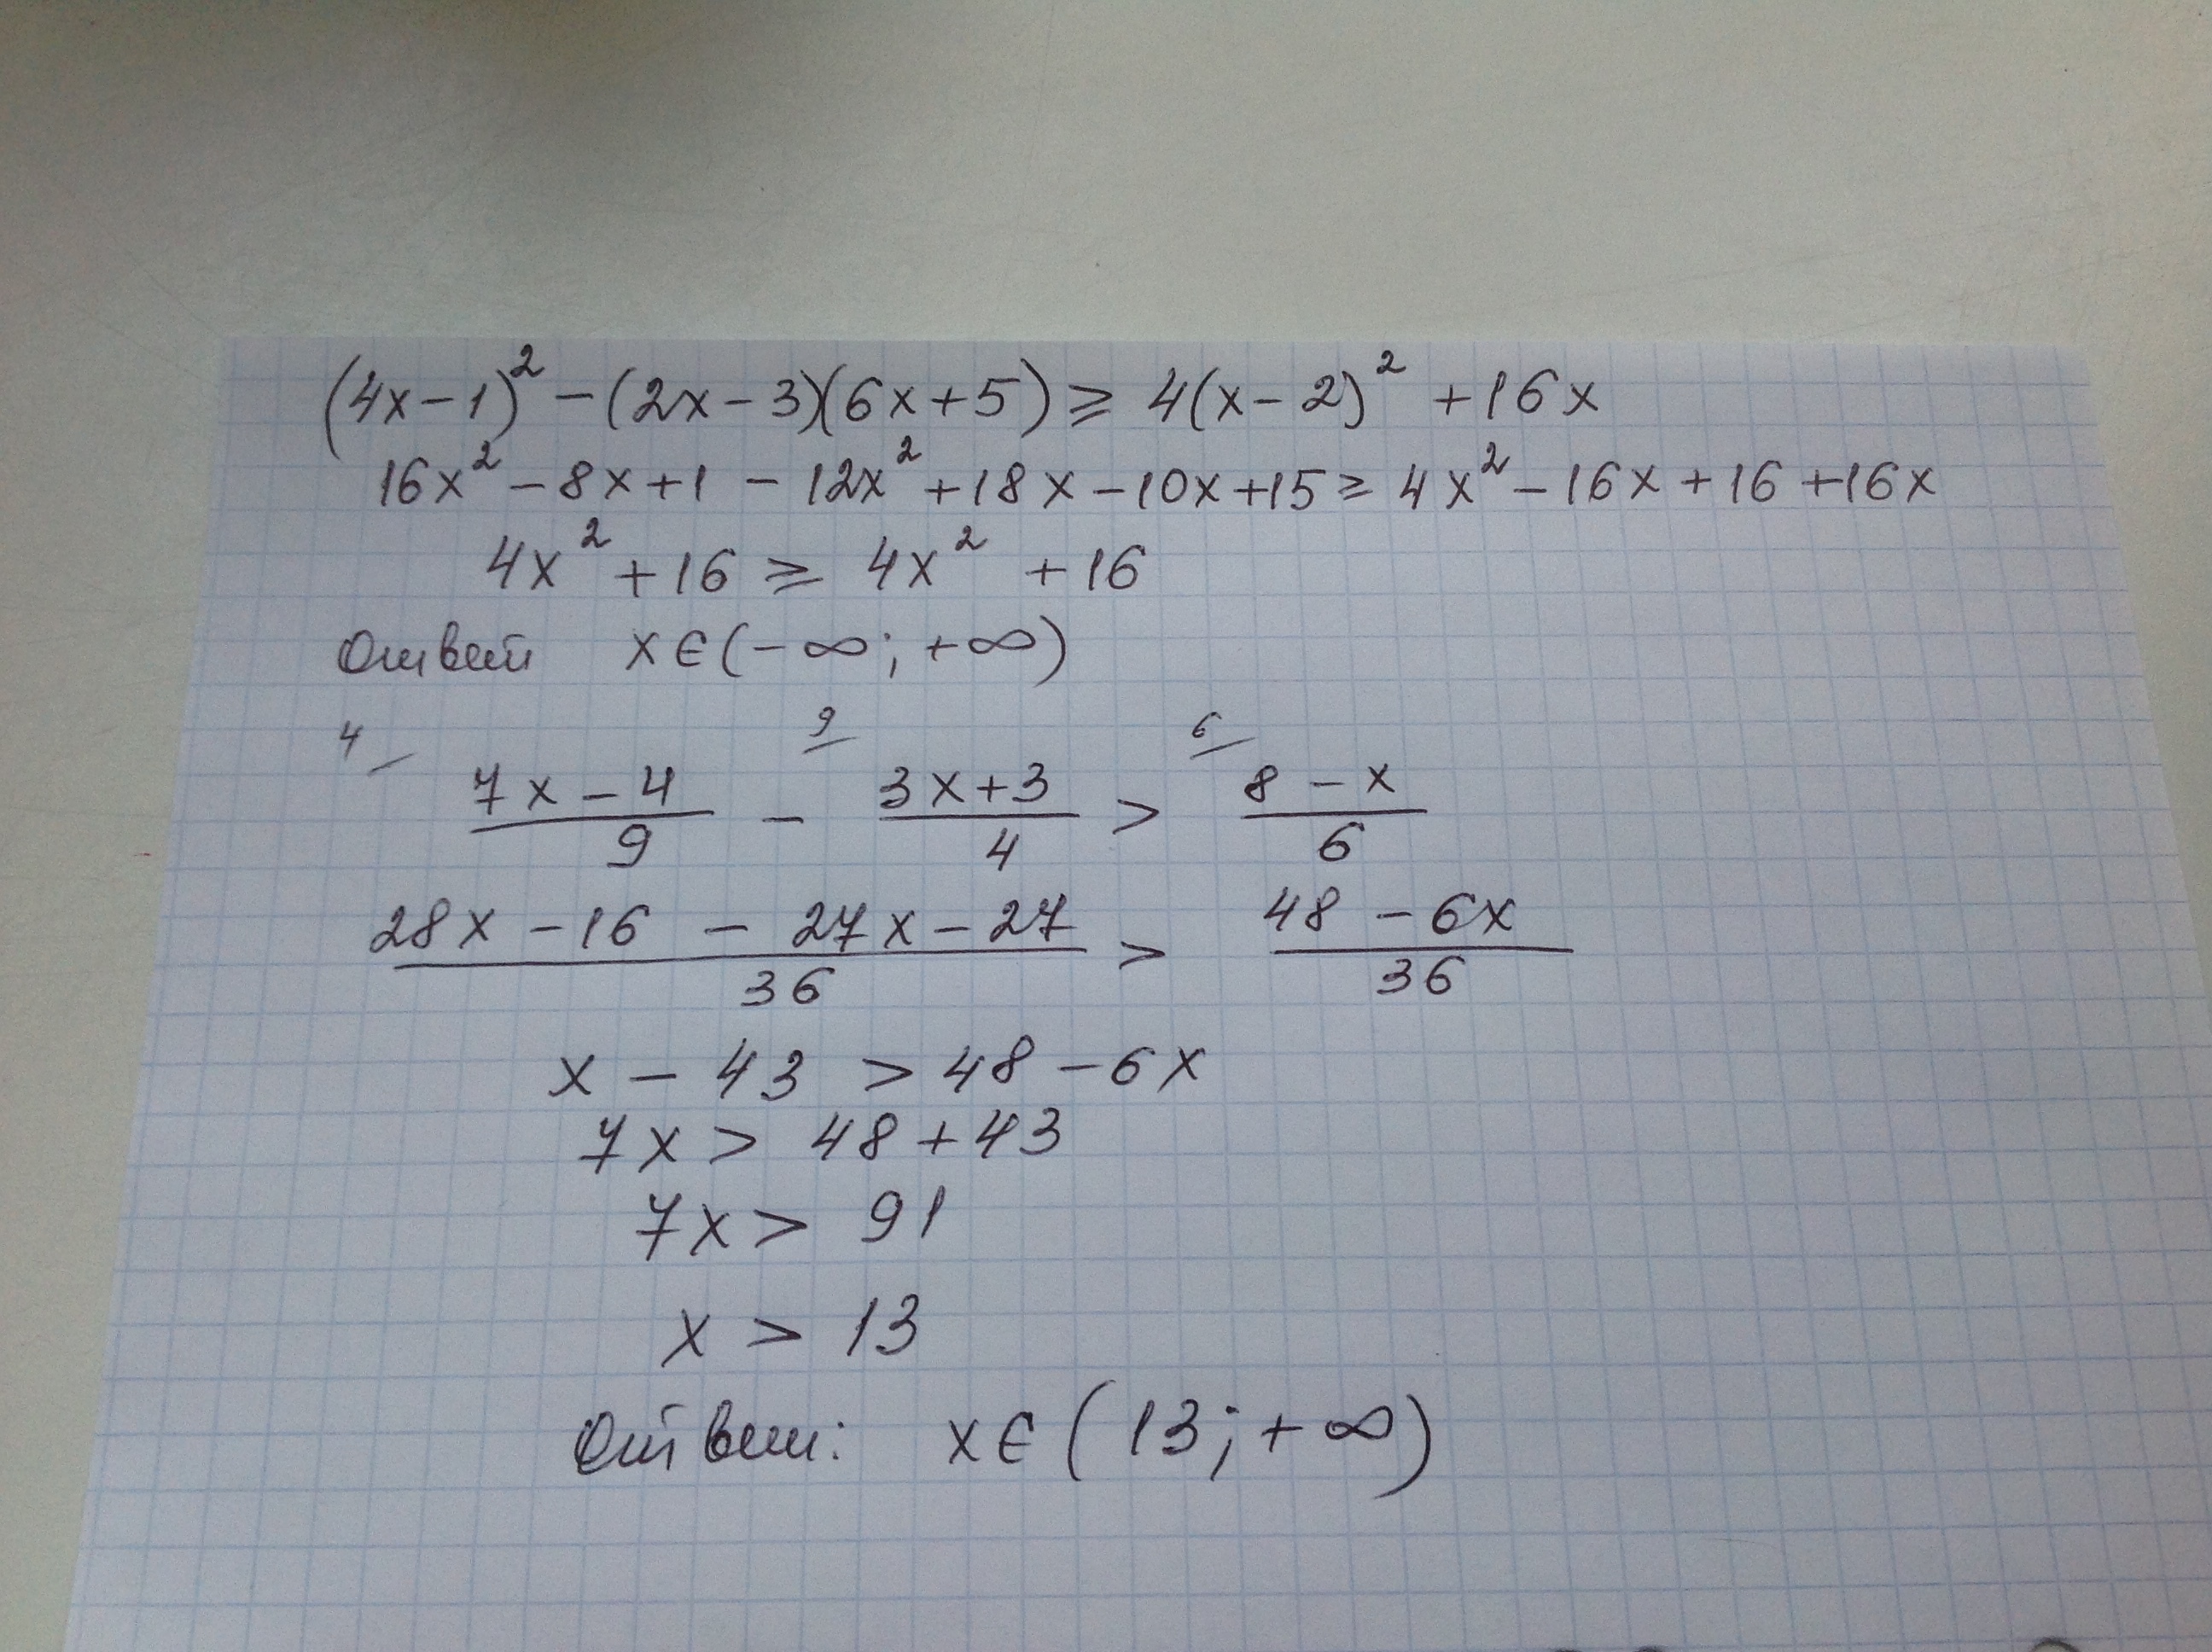 (4x-1)² - (2x-3)(6x+5) ≥ 4(x-2)² + 16x
16x² - 8x + 1 - 12x² + 18x - 10x + 15 ≥ 4x² - 16x + 16 + 16x
4x² + 16 ≥ 4x² + 16
Ответ x ∈ (-∞; +∞)
4 9 6
7x - 4 / 9 - 3x + 3 / 4 > 8 - x / 6
28x - 16 - 27x - 27 / 36 > 48 - 6x / 36
x - 43 > 48 - 6x
7x > 48 + 43
7x > 91
x > 13
Ответ: x ∈ (13; +∞)